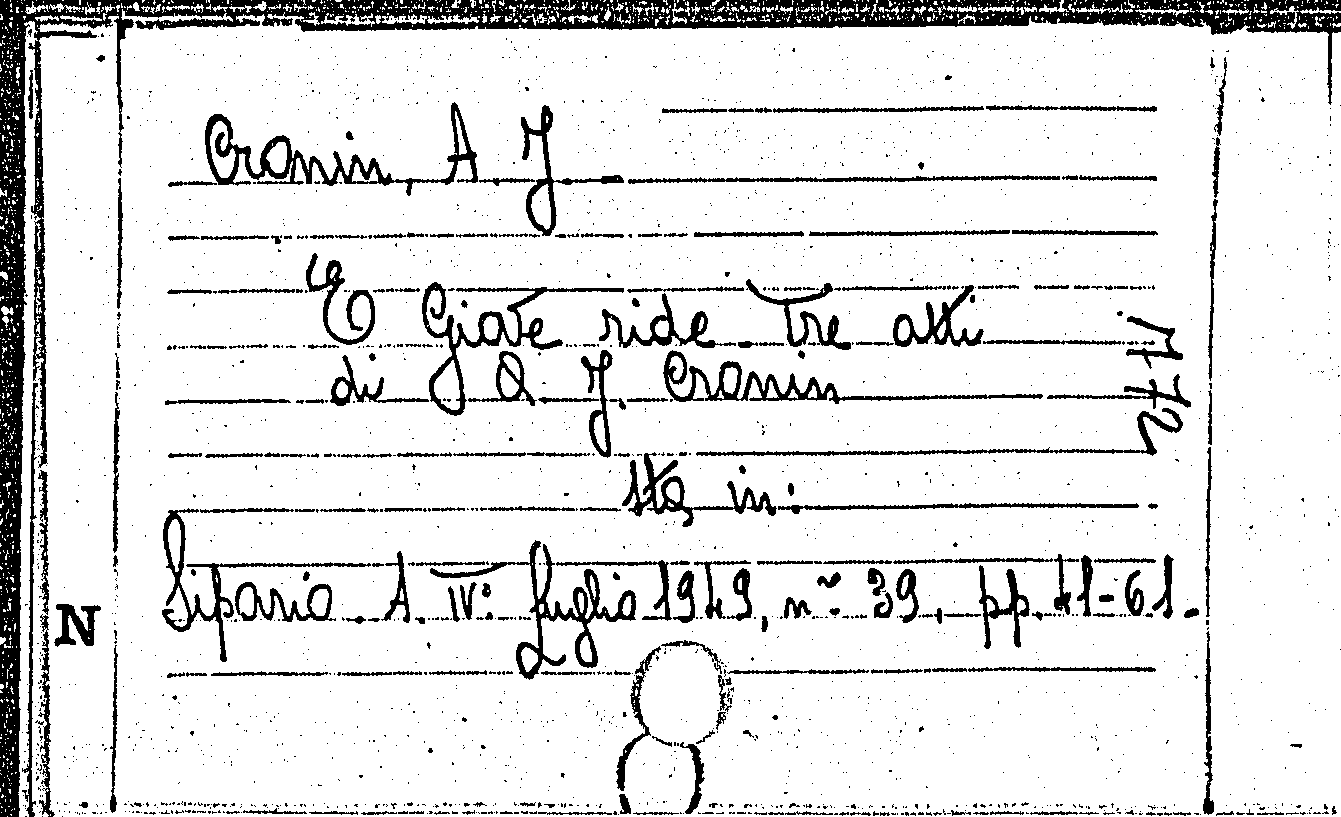 Cronin, A. J. -
E Giove ride - Tre atti
di A. J. Cronin
sta in:
Sipario. A. IV: Luglio 1949, n° 39, pp. 41-61.
N